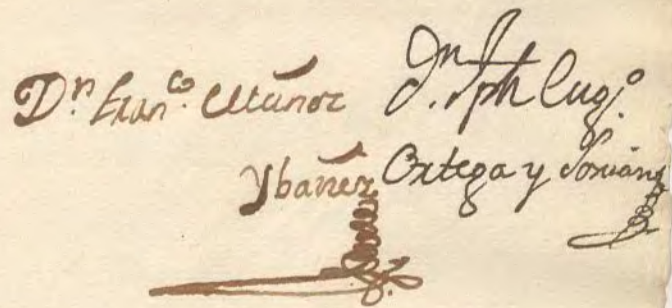 Dn. Franco. Muñoz
Ybañez
Dn. Jph Eugo.
Ortega y Soriano